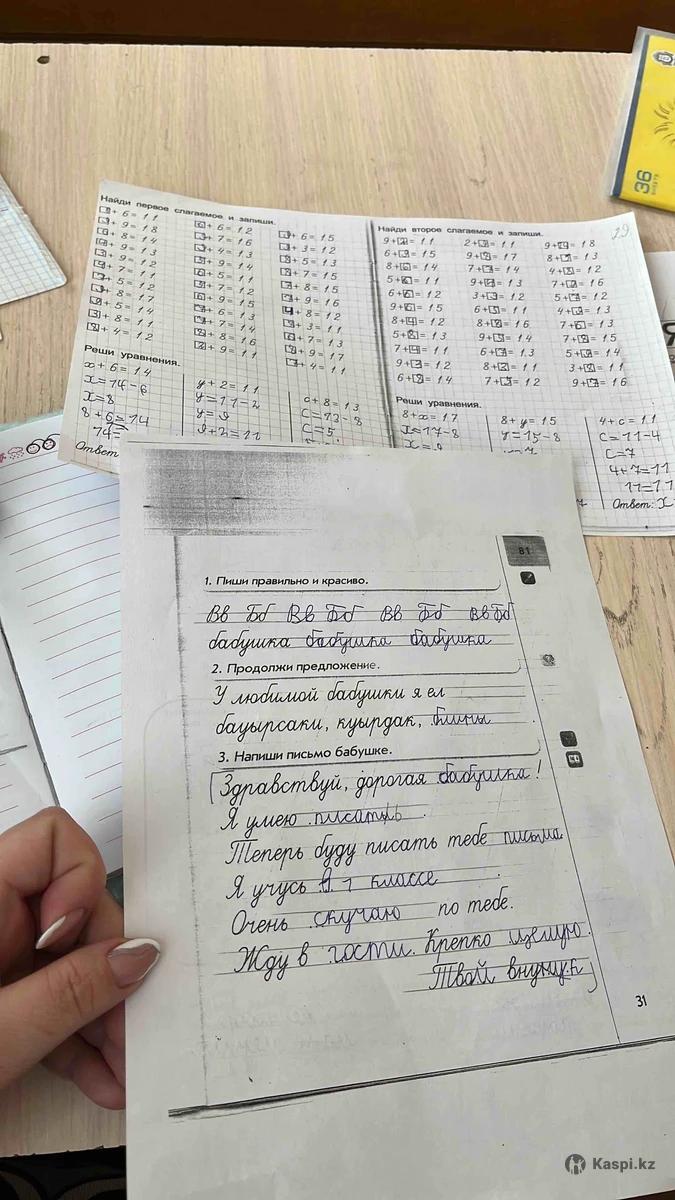 36
SHEETS
29
Найди первое слагаемое и запиши.
+ 6 = 11
+ 9 = 18
+ 8 = 14
+ 9 = 13
+ 9 = 12
+ 7 = 11
+ 5 = 12
+ 8 = 17
+ 5 = 14
+ 8 = 11
+ 4 = 12
+ 6 = 12
+ 7 = 16
+ 4 = 13
+ 9 = 14
+ 5 = 11
+ 7 = 12
+ 9 = 15
+ 6 = 13
+ 7 = 14
+ 8 = 16
+ 9 = 11
+ 6 = 15
+ 3 = 12
+ 5 = 13
+ 7 = 15
+ 8 = 15
+ 9 = 16
4 + 8 = 12
+ 3 = 11
+ 6 = 14
+ 9 = 17
+ 4 = 11
Реши уравнения.
x + 6 = 14
x=14-6
x=8
8+6=14
14=
Ответ
y + 2 = 11
y=11-2
y=9
9+2=11
c + 8 = 13
c=13-8
c=5
Найди второе слагаемое и запиши.
9+2=11
6+9=15
8+6=14
5+6=11
6+6=12
8+4=12
5+8=13
7+4=11
9+3=12
6+8=14
2+9=11
9+8=17
7+7=14
9+4=13
3+9=12
6+5=11
8+8=16
9+5=14
6+7=13
8+3=11
7+5=12
9+9=18
8+5=13
4+8=12
7+9=16
5+7=12
4+9=13
7+6=13
7+8=15
5+9=14
3+8=11
9+7=16
Реши уравнения.
8+x=17
x=17-8
x=9
8+y=15
y=15-8
4+c=11
c=11-4
c=7
4+7=11
11=11
Ответ: x
81
1. Пиши правильно и красиво.
Вв Бб Вв Бб Вв Бб Вв Бб
бабушка бабушка бабушка
2. Продолжи предложение.
У любимой бабушки я ел
бауырсаки, куырдак, блины .
3. Напиши письмо бабушке.
Здравствуй, дорогая бабушка!
Я умею писать .
Теперь буду писать тебе письма
Я учусь в 1 классе .
Очень скучаю по тебе.
Жду в гости. Крепко целую.
Твой внучук
31
Kaspi.kz